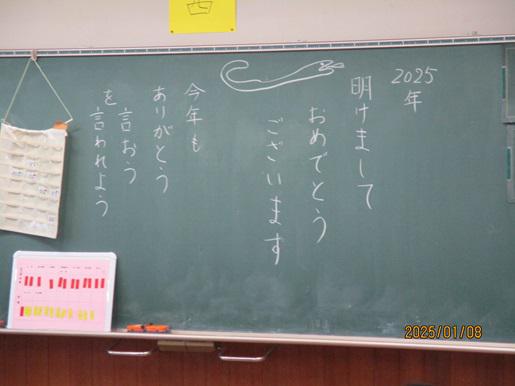 2025年
明けまして
おめでとう
ございます
今年も
ありがとう
を言おう
言われよう
2025/01/08